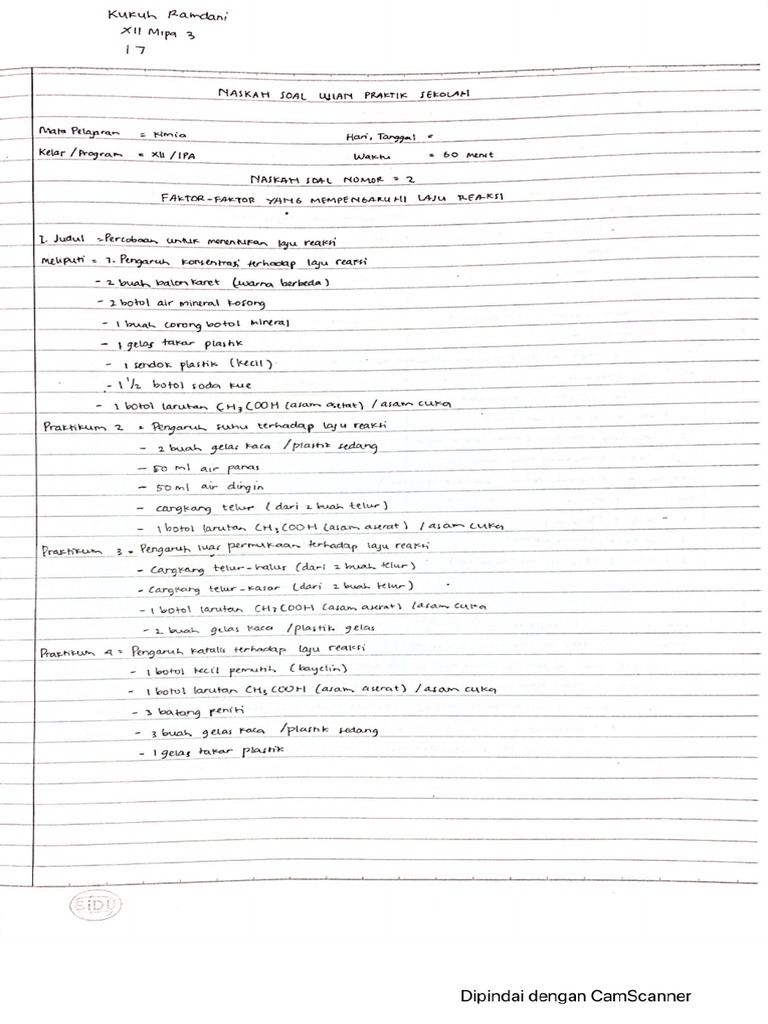 Kukuh Ramdani
XII Mipa 3
17
NASKAH SOAL UJIAN PRAKTIK SEKOLAH
Mata Pelajaran = Kimia
Hari, Tanggal =
Kelas / Program = XII / IPA
Waktu = 60 menit
NASKAH SOAL NOMOR = 2
FAKTOR-FAKTOR YANG MEMPENGARUHI LAJU REAKSI
I. Judul = Percobaan untuk menentukan laju reaksi
Meliputi = 1. Pengaruh konsentrasi terhadap laju reaksi
- 2 buah balon karet (warna berbeda)
- 2 botol air mineral kosong
- 1 buah corong botol mineral
- 1 gelas takar plastik
- 1 sendok plastik (kecil)
- 1 1/2 botol soda kue
- 1 botol larutan CH3COOH (asam asetat) / asam cuka
Praktikum 2 = Pengaruh suhu terhadap laju reaksi
- 2 buah gelas kaca / plastik sedang
- 50 ml air panas
- 50 ml air dingin
- cangkang telur (dari 2 buah telur)
- 1 botol larutan CH3COOH (asam aserat) / asam cuka
Praktikum 3 = Pengaruh luas permukaan terhadap laju reaksi
- Cangkang telur-halus (dari 2 buah telur)
- Cangkang telur-kasar (dari 2 buah telur)
- 1 botol larutan CH3COOH (asam aserat) / asam cuka
- 2 buah gelas kaca / plastik gelas
Praktikum 4 = Pengaruh katalis terhadap laju reaksi
- 1 botol kecil pemutih (bayclin)
- 1 botol larutan CH3COOH (asam aserat) / asam cuka
- 3 batang peniti
- 3 buah gelas kaca / plastik sedang
- 1 gelas takar plastik
SiDU
Dipindai dengan CamScanner